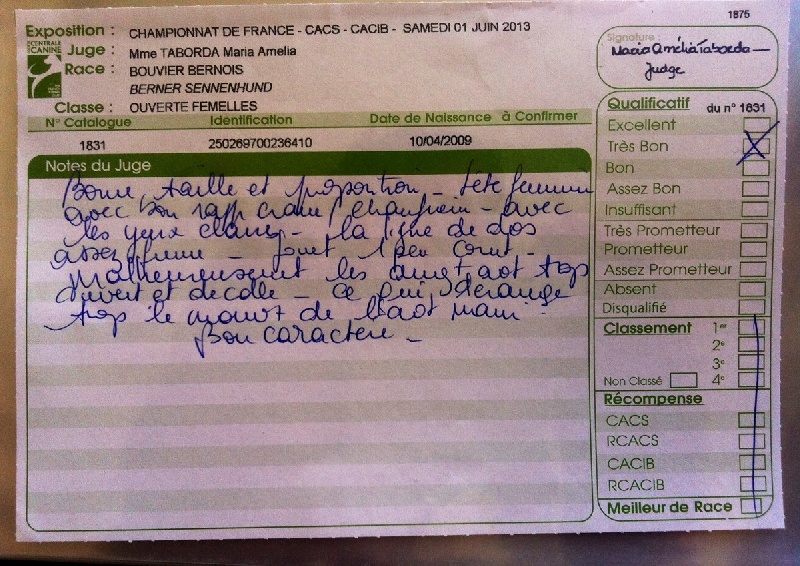 1875
Exposition : CHAMPIONNAT DE FRANCE - CACS - CACIB - SAMEDI 01 JUIN 2013
CENTRALE CANINE
Juge : Mme TABORDA Maria Amelia
Race : BOUVIER BERNOIS
BERNER SENNENHUND
Classe : OUVERTE FEMELLES
N° Catalogue Identification Date de Naissance à Confirmer
1831 250269700236410 10/04/2009
Notes du Juge
Bonne taille et proportion - tête
avec bon rapp crane/chanfrein - avec
les yeux clairs - la ligne de dos
assez ferme - 1 peu court -
Malheureusement les trop
ouvert et decollé - ce qui dérange
trop le mouvt de
Bon caractere -
Signature :
Maria Amélia Taborda
Judge
Qualificatif du n° 1831
Excellent
Très Bon X
Bon
Assez Bon
Insuffisant
Très Prometteur
Prometteur
Assez Prometteur
Absent
Disqualifié
Classement 1er
2e
3e
Non Classé 4e
Récompense
CACS
RCACS
CACIB
RCACIB
Meilleur de Race